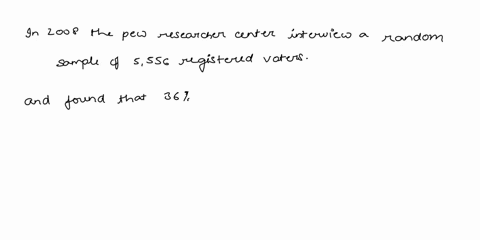 In 2008 the pew researcher center interview a random
sample of 5,556 registered voters.
and found that 36%